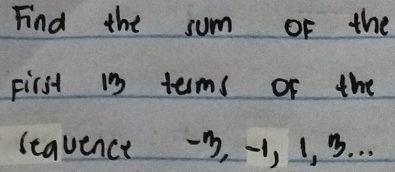 Find the sum OF the
First 13 terms OF the
sequence -3, -1, 1, 3...